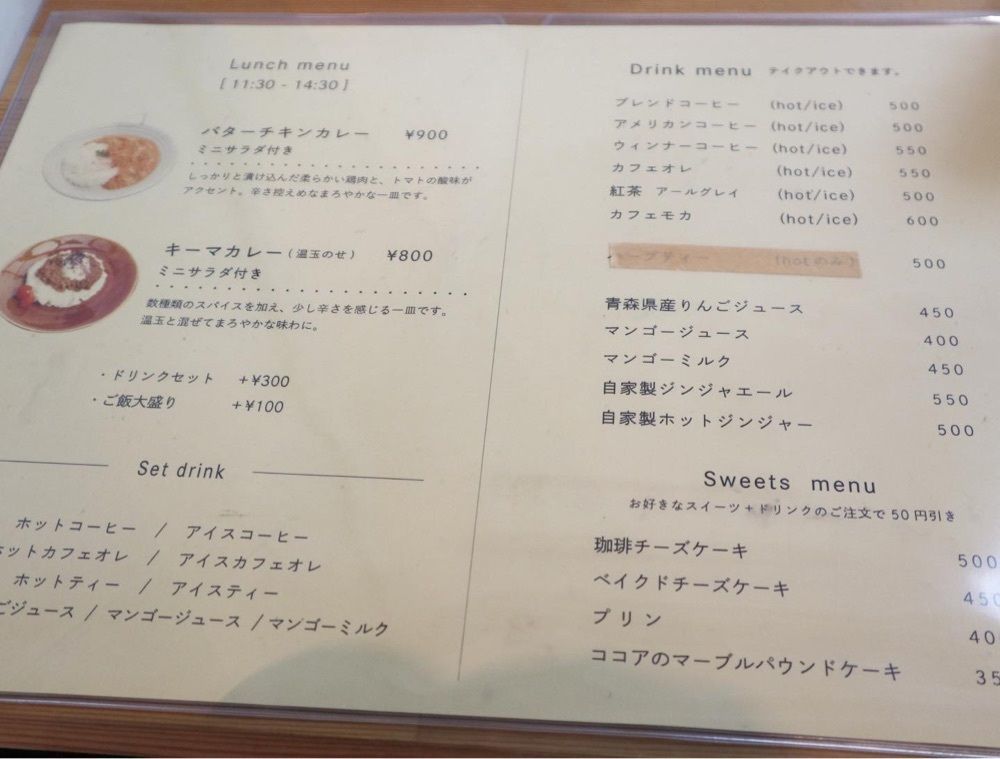 Lunch menu
[ 11:30 - 14:30 ]
バターチキンカレー ¥900
ミニサラダ付き
しっかりと漬け込んだ柔らかい鶏肉と、トマトの酸味が
アクセント。辛さ控えめなまろやかな一皿です。
キーマカレー(温玉のせ) ¥800
ミニサラダ付き
数種類のスパイスを加え、少し辛さを感じる一皿です。
温玉と混ぜてまろやかな味わに。
・ドリンクセット +¥300
・ご飯大盛り +¥100
Set drink
ホットコーヒー / アイスコーヒー
ホットカフェオレ / アイスカフェオレ
ホットティー / アイスティー
ごジュース / マンゴージュース / マンゴーミルク
Drink menu テイクアウトできます。
ブレンドコーヒー (hot/ice) 500
アメリカンコーヒー (hot/ice) 500
ウィンナーコーヒー (hot/ice) 550
カフェオレ (hot/ice) 550
紅茶 アールグレイ (hot/ice) 500
カフェモカ (hot/ice) 600
ハーブティー (hotのみ) 500
青森県産りんごジュース 450
マンゴージュース 400
マンゴーミルク 450
自家製ジンジャエール 550
自家製ホットジンジャー 500
Sweets menu
お好きなスイーツ+ドリンクのご注文で50円引き
珈琲チーズケーキ 500
ベイクドチーズケーキ 450
プリン 40
ココアのマーブルパウンドケーキ 35